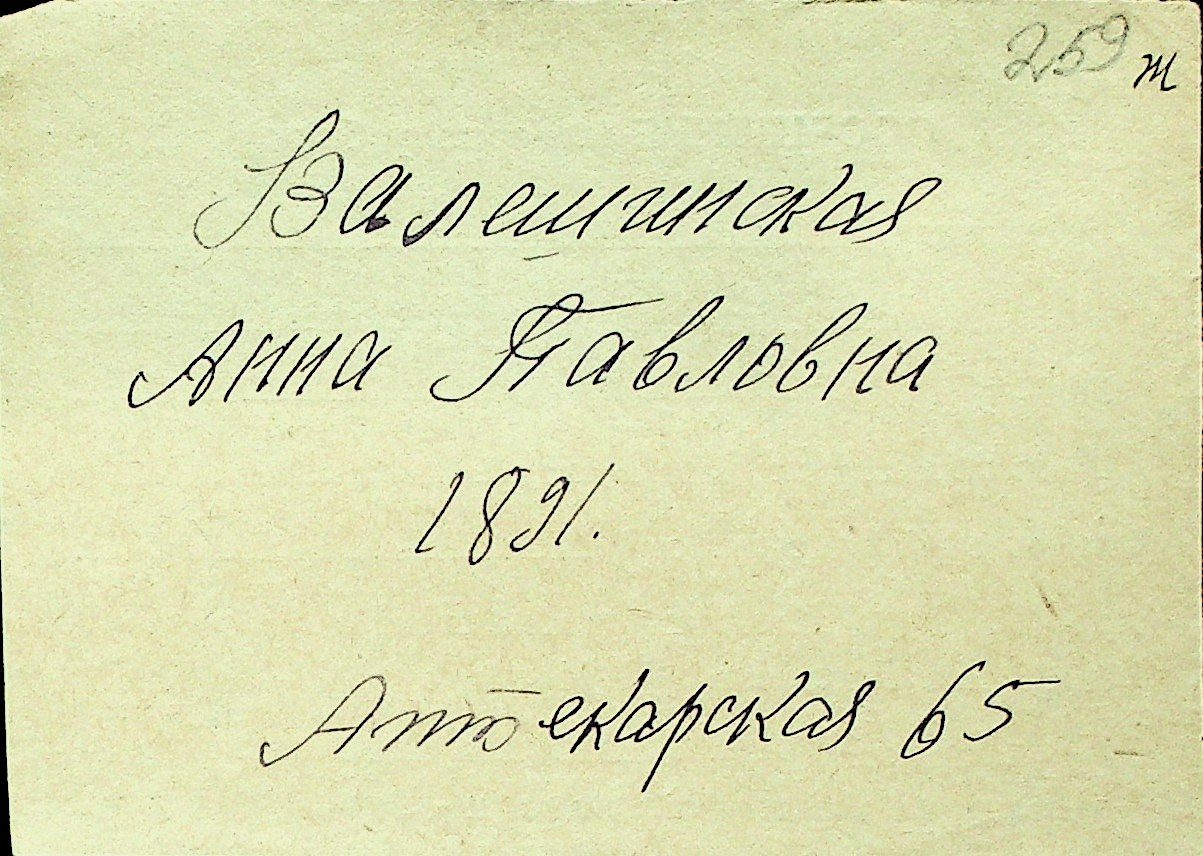 259 т
Валешинская
Анна Павловна
1891.
Аптекарская 65